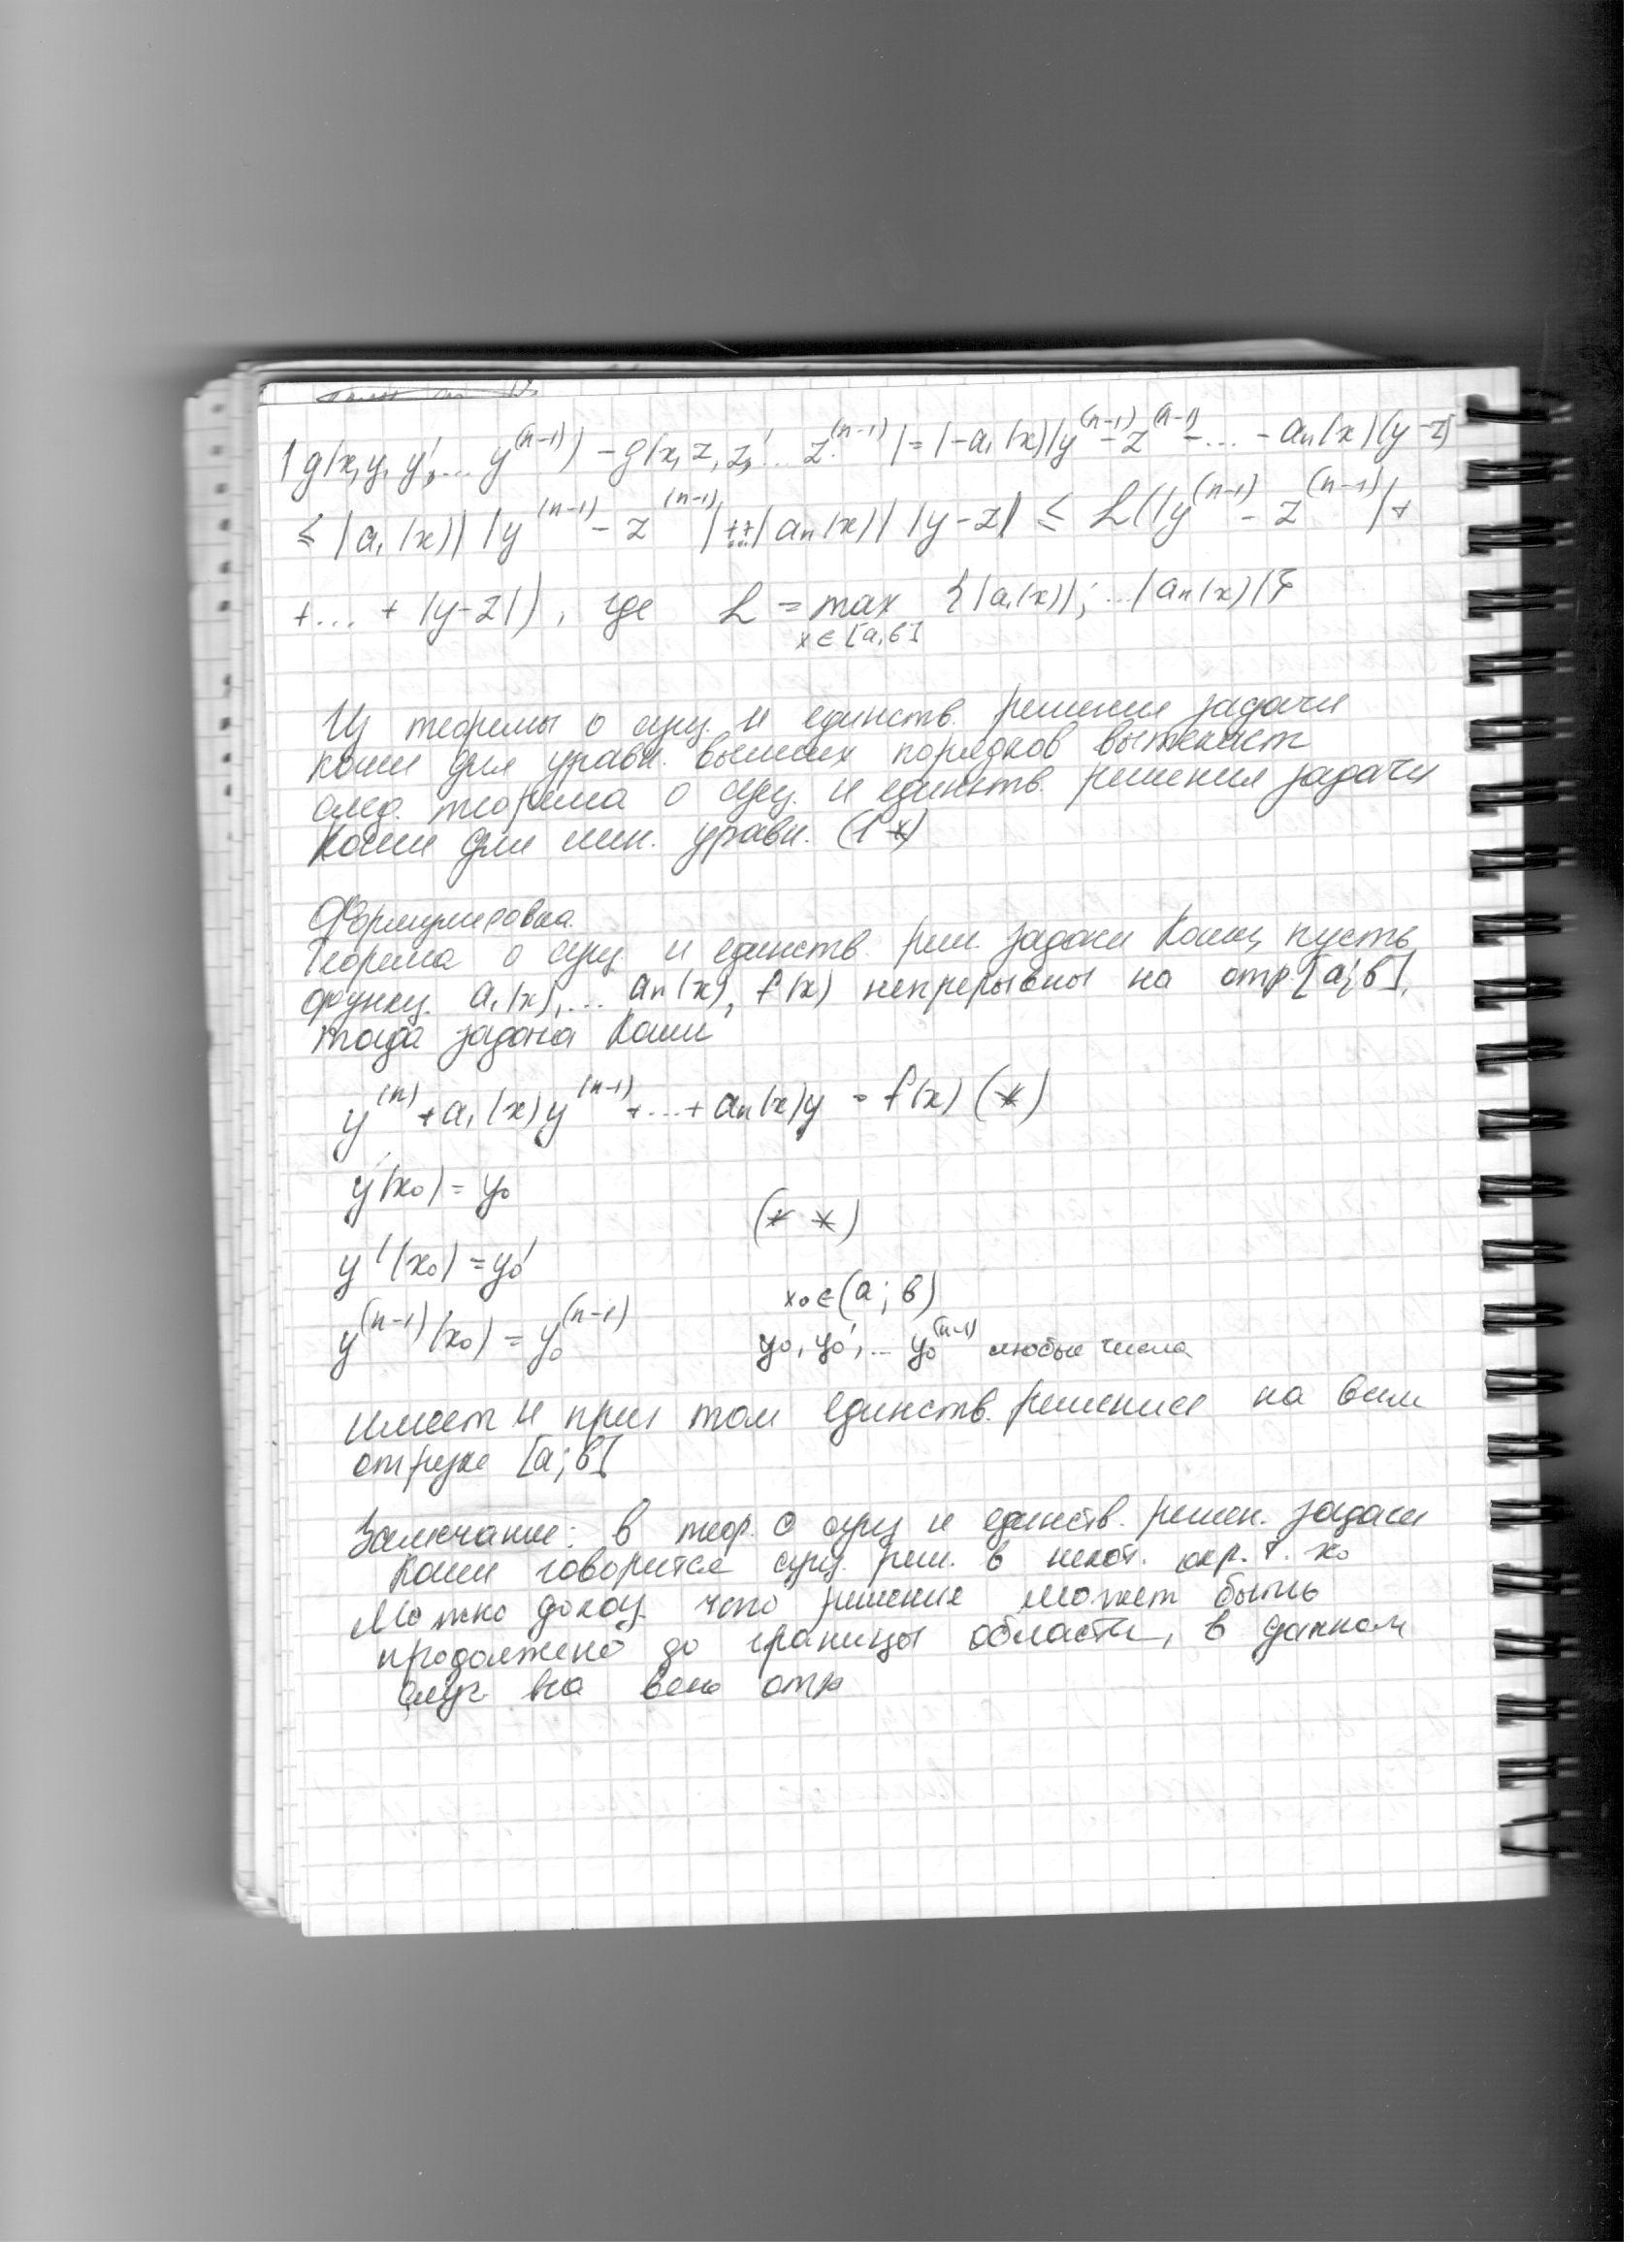 |g(x,y,y',... y^(n-1)) - g(x,z,z',... z^(n-1))| = |-a₁(x)(y^(n-1) - z^(n-1) - ... - aₙ(x)(y-z)|
≤ |a₁(x)| |y^(n-1) - z^(n-1)| + ... + |aₙ(x)| |y-z| ≤ L(|y^(n-1) - z^(n-1)| +
+ ... + |y-z|), где L = max {|a₁(x)|; ... |aₙ(x)|}
x∈[a,b]
Из теоремы о сущ. и единств. решения задачи
Коши для уравн. высших порядков вытекает
след. теорема о сущ. и единств. решения задачи
Коши для лин. уравн. (1*)
Формулировка.
Теорема о сущ и единств. реш. задачи Коши, пусть
функц. a₁(x),... aₙ(x), f(x) непрерывны на отр. [a;b],
тогда задача Коши
y^(n) + a₁(x)y^(n-1) + ... + aₙ(x)y = f(x) (*)
y(x₀) = y₀
(* *)
y'(x₀) = y₀'
x₀∈(a;b)
y^(n-1)(x₀) = y₀^(n-1)
y₀, y₀',... y₀^(n-1) любые числа
имеет и при том единств. решение на всем
отрезке [a;b]
Замечание: в теор. о сущ и единств. решен. задачи
Коши говорится сущ. реш. в некот. окр. т. x₀
Можно доказ. что решение может быть
продолжено до границы области, в данном
случ. на весь отр